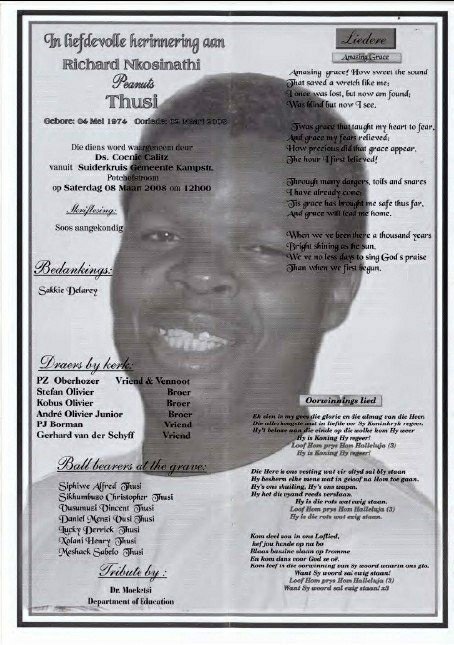 In liefdevolle herinnering aan
Richard Nkosinathi
Peanuts
Thusi
Gebore: 04 Mei 1974 Oorlede: 2008
Die diens word waargeneem deur
Ds. Coenie Calitz
vanuit Suiderkruis Gemeente Kampstr.
Potchefstroom
op Saterdag 08 Maar 2008 om 12h00
Skriflesing:
Soos aangekondig
Bedankings:
Sakkie Delarey
Draers by kerk:
PZ Oberhozer Vriend & Vennoot
Stefan Olivier Broer
Kobus Olivier Broer
André Olivier Junior Broer
PJ Borman Vriend
Gerhard van der Schyff Vriend
Ball bearers at the grave:
Siphiwe Alfred Thusi
Sikhumbuzo Christopher Thusi
Vusumuzi Vincent Thusi
Daniel Menzi Vusi Thusi
Lucky Derrick Thusi
Xolani Henry Thusi
Meshack Sabelo Thusi
Tribute by :
Dr. Moeketsi
Department of Education
Liedere
Amazing Grace
Amazing grace! How sweet the sound
That saved a wretch like me;
I once was lost, but now am found;
Was blind but now I see.
'Twas grace that taught my heart to fear,
And grace my fears relieved;
How precious did that grace appear,
The hour I first believed!
Through many dangers, toils and snares
I have already come;
'Tis grace has brought me safe thus far,
And grace will lead me home.
When we've been there a thousand years
Bright shining as the sun,
We've no less days to sing God's praise
Than when we first begun.
Oorwinnings lied
Ek sien in my gees die glorie en die almag van die Heer
Die allerhoogste wat in liefde oor Sy Koninkryk regeer.
Hy't belowe aan die einde op die wolke kom Hy weer
Hy is Koning Hy regeer!
Loof Hom prys Hom Halleluja (3)
Hy is Koning Hy regeer!
Die Here is ons vesting wat vir altyd sal bly staan
Hy beskerm elke mens wat in geloof na Hom toe gaan.
Hy's ons skuiling, Hy's ons wapen,
Hy het die vyand reeds verslaan.
Hy is die rots wat ewig staan.
Loof Hom prys Hom Halleluja (3)
Hy is die rots wat ewig staan.
Kom deel nou in ons Loflied,
hef jou hande op na bo
Blaas basuine slaan op tromme
En kom dans voor God se oë.
Kom leef in die oorwinning van Sy woord waarin ons glo.
Want Sy woord sal ewig staan!
Loof Hom prys Hom Halleluja (3)
Want Sy woord sal ewig staan! x3